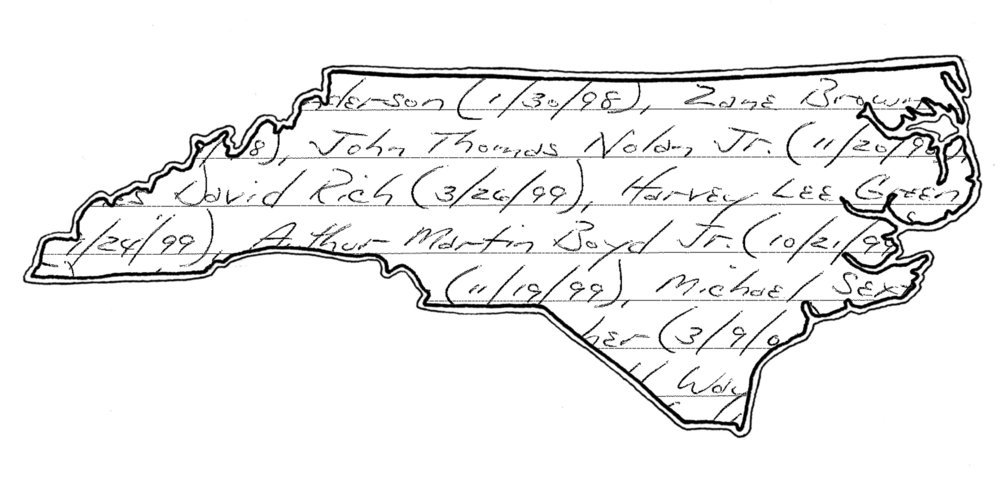 derson (1/30/98), Zane Brown
/98), John Thomas Noland Jr. (11/20/98
s David Rich (3/26/99), Harvey Lee Green
/24/99), Arthur Martin Boyd Jr. (10/21/99
(11/19/99), Michael Sex
her (3/9/0
ll Way